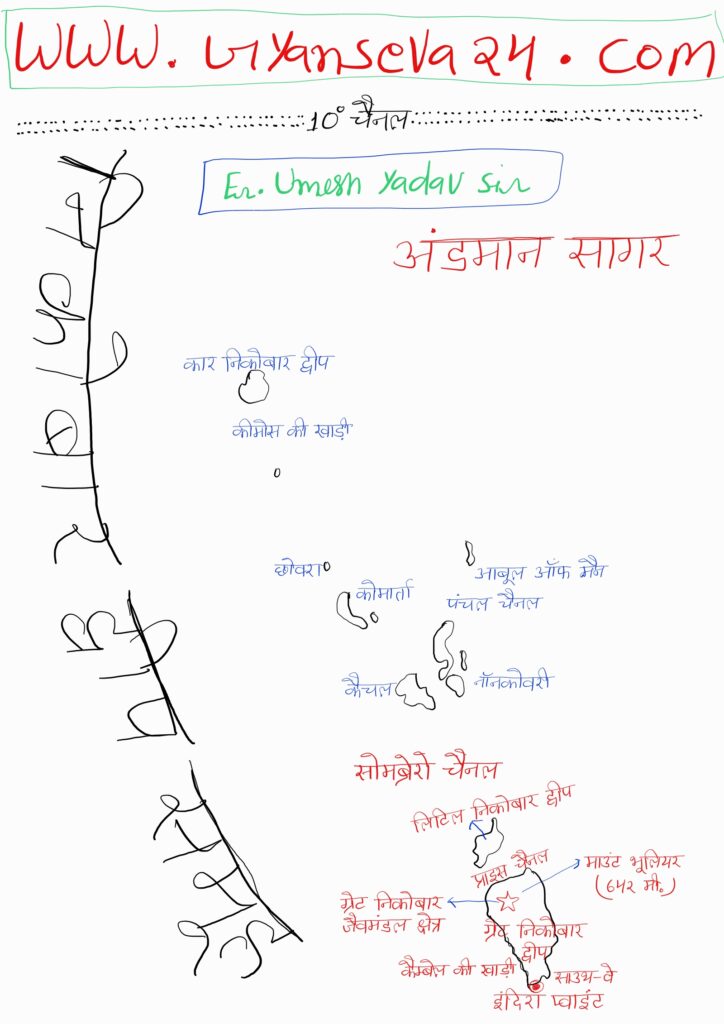 www.gyanseva24.com
10° चैनल
Er. Umesh Yadav Sir
अंडमान सागर
निकोबार द्वीप समूह
कार निकोबार द्वीप
कीमोस की खाड़ी
छोवरा
आबूल ऑफ मैन
कोमार्ता
पंचल चैनल
कैचल
नॉनकोवरी
सोमब्रेरो चैनल
लिटिल निकोबार द्वीप
प्राइस चैनल
माउंट भूलियर
(642 मी०)
ग्रेट निकोबार
जैवमंडल क्षेत्र
ग्रेट निकोबार
द्वीप
कैम्बेल की खाड़ी
साउथ-वे
इंदिरा प्वाइंट